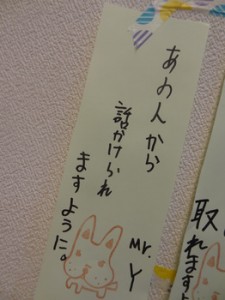 あの人から
話かけられ
ますように。
Mr.
Y
取れますよ